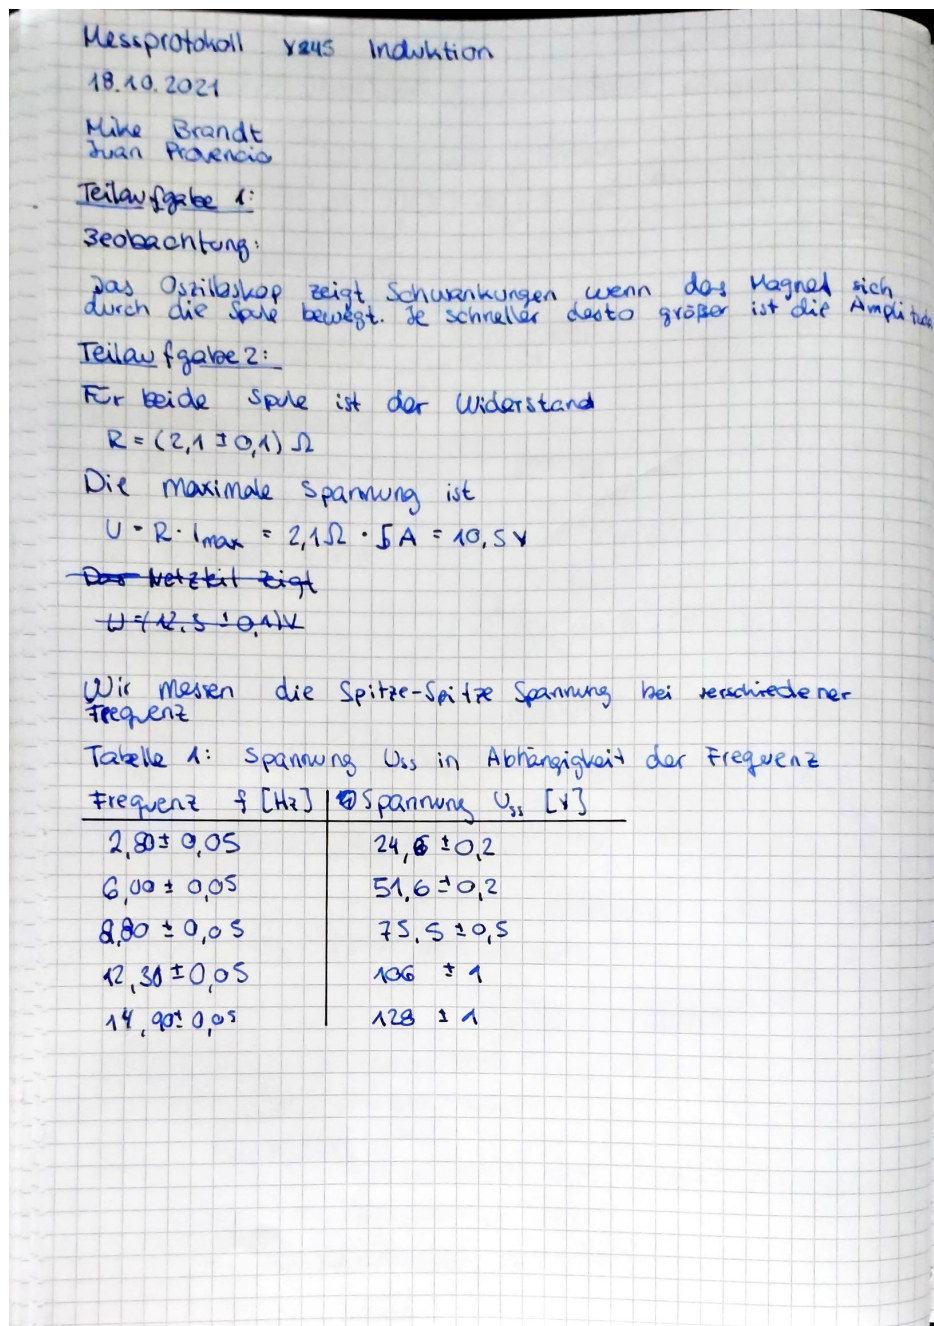 Messprotokoll V245 Induktion
18.10.2021
Mike Brandt
Juan Provencio
Teilaufgabe 1:
Beobachtung:
Das Oszilloskop zeigt Schwankungen wenn das Magned sich
durch die Spule bewegt. Je schneller desto größer ist die Amplitude
Teilaufgabe 2:
Für beide Spule ist der Widerstand
R = (2,1 ± 0,1) Ω
Die maximale Spannung ist
U = R · Imax = 2,1Ω · 5A = 10,5V
Das Netzteil zeigt
U = (12,5 ± 0,1)V
Wir messen die Spitze-Spitze Spannung bei verschiedener
Frequenz
Tabelle 1: Spannung Uss in Abhängigkeit der Frequenz
Frequenz f [Hz] Spannung Uss [V]
2,80 ± 0,05 24,6 ± 0,2
6,00 ± 0,05 51,6 ± 0,2
8,80 ± 0,05 75,5 ± 0,5
12,30 ± 0,05 106 ± 1
14,90 ± 0,05 128 ± 1